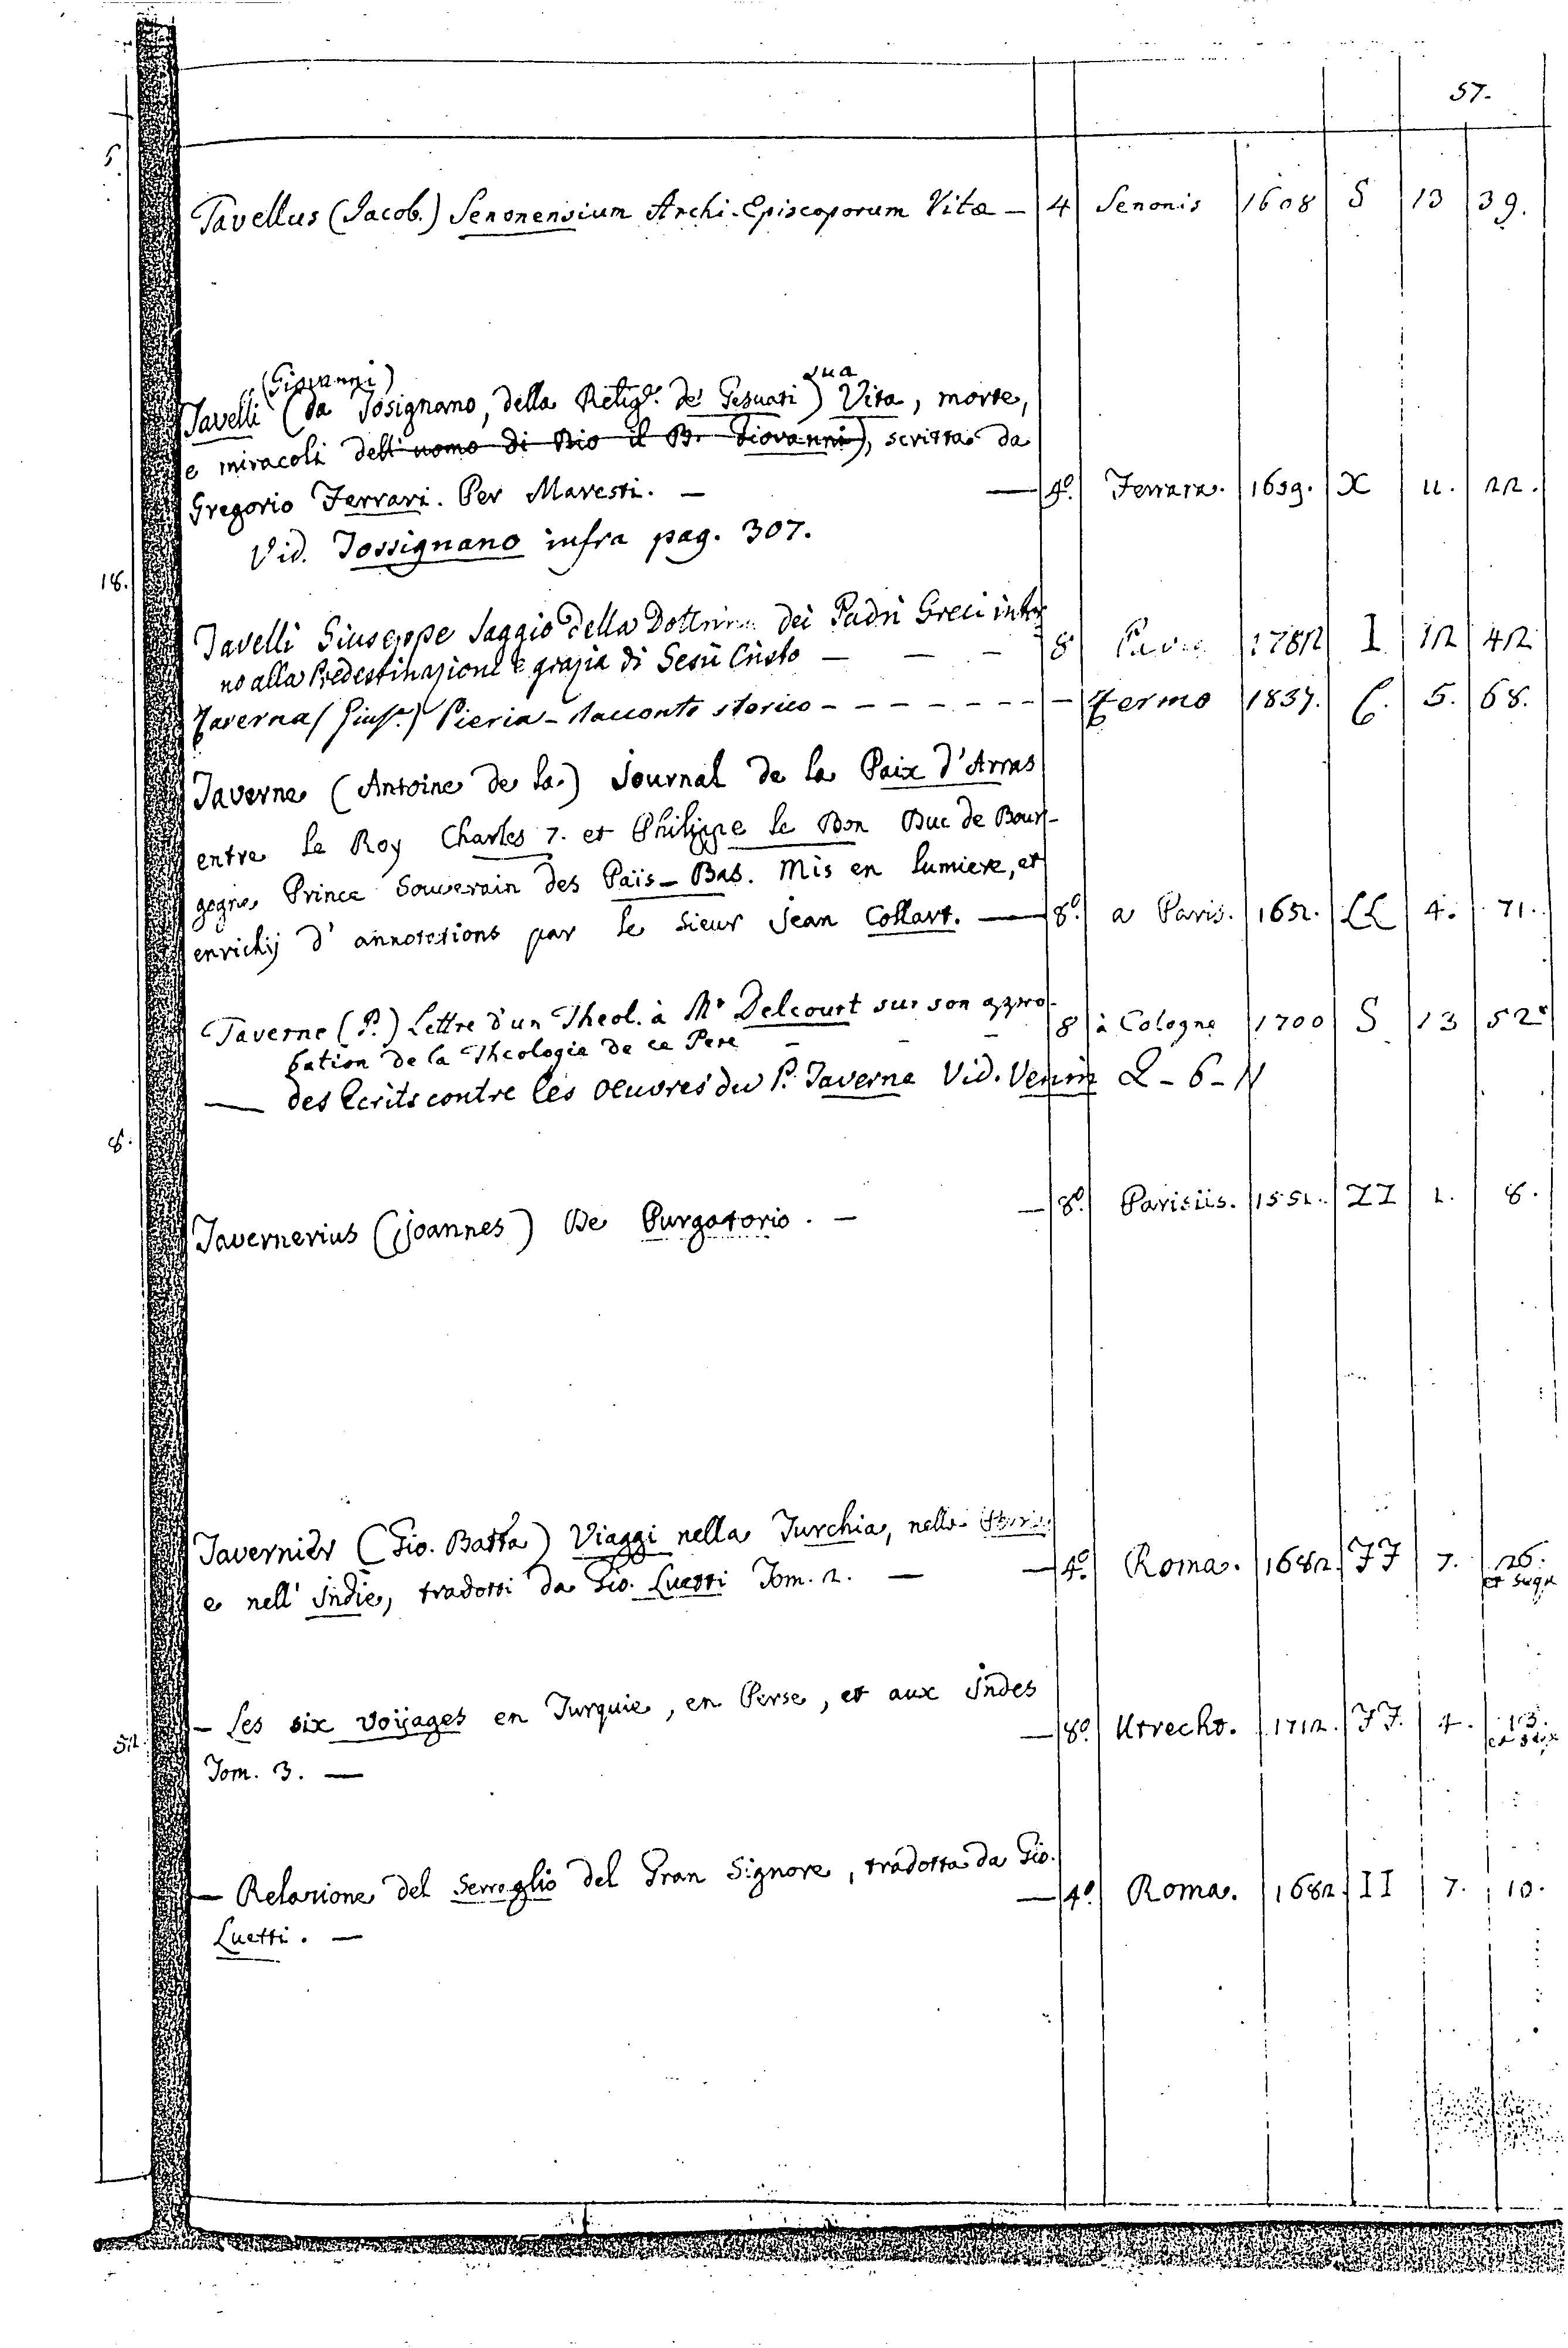 57.
Tavellus (Jacob.) Senonensium Archi-Episcoporum Vitæ — 4 Senonis 1608 S 13 39.
(Giovanni) sua
Tavelli (da Tosignano, della Relig.e de' Gesuati) Vita, morte,
e miracoli dell'uomo di Dio il B. Giovanni), scritta da
Gregorio Ferrari. Per Maresti. — — 4.º Ferrara. 1659. X 11. 22.
Vid. Tossignano infra pag. 307.
18.
Tavelli Giuseppe Saggio della Dottrina dei Padri Greci intor
no alla Predestinazione e grazia di Gesù Cristo — — — 8 Pavia 1782 I 12 42
Taverna (Gius.e) Pieria - Racconto storico - - - - - - - - Fermo 1837. C. 5. 68.
Taverne (Antoine de la) Journal de la Paix d'Arras
entre le Roy Charles 7. et Philippe le Bon Duc de Bour-
gogne, Prince Souverain des Païs-Bas. Mis en lumiere, et
enrichij d'annotations par le Sieur Jean Collart. — 8.º a Paris. 1651. LL 4. 71.
Taverne (P.) Lettre d'un Theol. à Mr Delcourt sur son appro-
bation de la Theologie de ce Pere — — — 8 à Cologne 1700 S 13 52
— des Ecrits contre les Oeuvres du P. Taverne Vid. Venin Q-6-N
8.
Tavernerius (Joannes) De Purgatorio. — — 8.º Parisiis. 1551. ZZ 1. 8.
Tavernier (Gio. Batta) Viaggi nella Turchia, nella
e nell'Indie, tradotti da Gio. Luetti Tom. 2. — — 4.º Roma. 1682. FF 7. 26. et seqq
— Les six voijages en Turquie, en Perse, et aux Indes
Tom. 3. — — 8.º Utrecht. 1712. FF. 4. 13. et seqq
52.
— Relazione del Serraglio del Gran Signore, tradotta da Gio.
Luetti. — — 4.º Roma. 1682. II 7. 10.